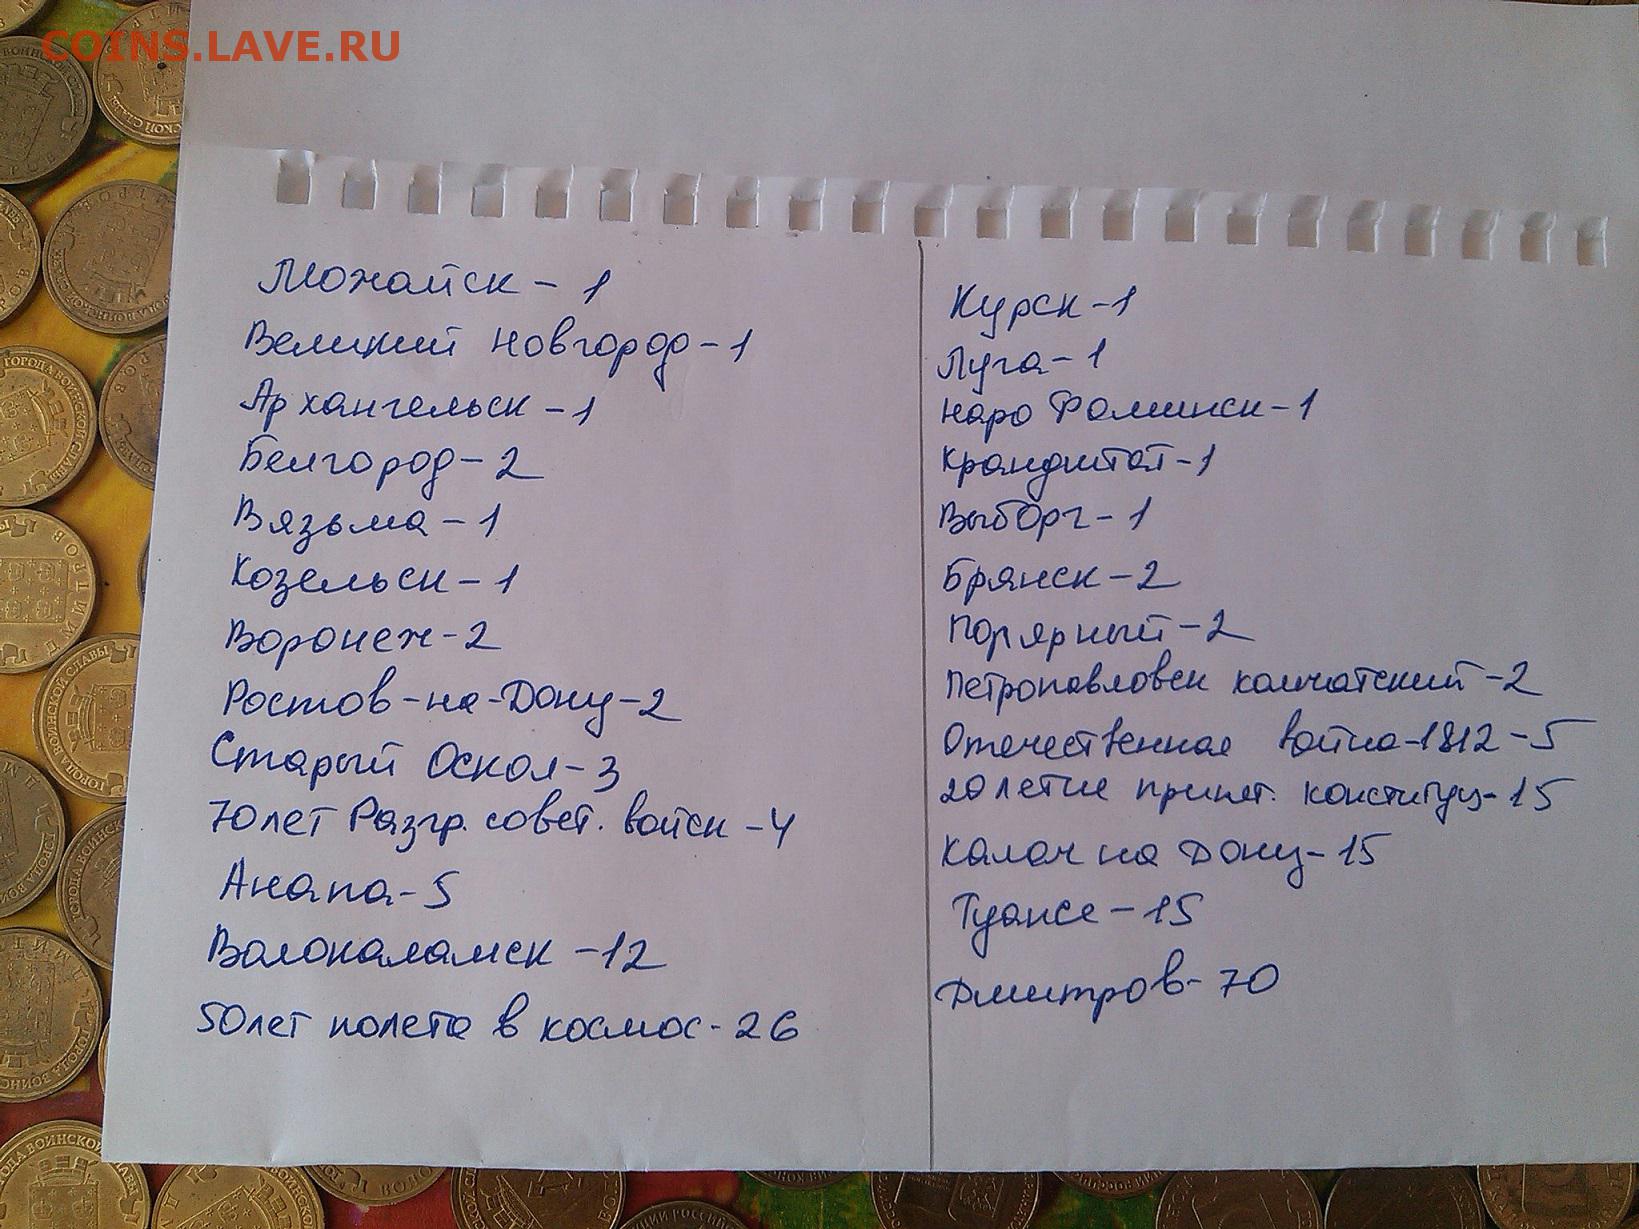 COINS.LAVE.RU
Можайск - 1
Великий Новгород - 1
Архангельск - 1
Белгород - 2
Вязьма - 1
Козельск - 1
Воронеж - 2
Ростов-на-Дону - 2
Старый Оскол - 3
70 лет Разгр. совет. войск - 4
Анапа - 5
Волокаламск - 12
50 лет полета в космос - 26
Курск - 1
Луга - 1
Наро Фоминск - 1
Крондштат - 1
Выборг - 1
Брянск - 2
Полярный - 2
Петропавловск камчатский - 2
Отечественная война-1812 - 5
20 летие принят. конституц - 15
Калач на Дону - 15
Туапсе - 15
Дмитров - 70